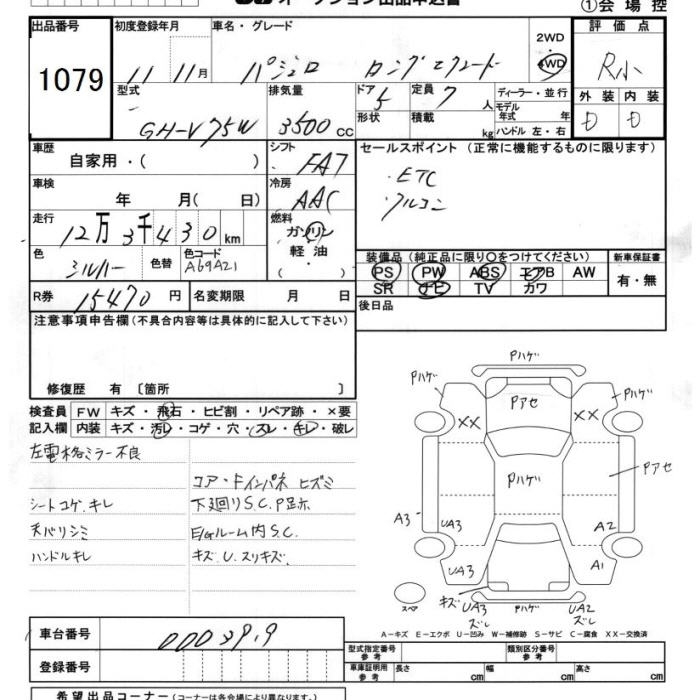 オークション出品申込書
①会場控
出品番号
1079
初度登録年月
11 11月
車名・グレード
パジェロ ロング エクシード
2WD
4WD
評価点
R小
外装 内装
D D
型式
GH-V75W
排気量
3500 CC
ドア
5
定員
7 人
ディーラー・並行
モデル年式 年
ハンドル 左・右
形状
積載
kg
車歴
自家用・( )
シフト
FAT
セールスポイント (正常に機能するものに限ります)
・ETC
・アルコン
車検
年 月( 日)
冷房
AAC
走行
12万3千430km
燃料
ガソリン
軽油
・( )
色
シルバー
色替
色コード
A69A21
装備品(純正品に限り○をつけてください)
PS PW ABS エアB AW
SR ナビ TV カワ
新車保証書
有・無
R券
15470円
名変期限 月 日
後日品
注意事項申告欄(不具合内容等は具体的に記入して下さい)
修復歴 有 〔箇所 〕
検査員記入欄
FW キズ・飛石・ヒビ割・リペア跡・×要
内装 キズ・汚レ・コゲ・穴・スレ・キレ・破レ
左電格ミラー不良
コア・ドインパネ ヒズミ
シートコゲ.キレ
下廻りS.C.P足示
天バリシミ
E/Gルーム内S.C.
ハンドルキレ
キズ.U.スリキズ
Pハゲ
Pハゲ
Pアセ
Pハゲ
XX
XX
Pハゲ
Pアセ
A3
UA3
A2
UA3
A1
キズ
スペア
UA3
ズレ
Pハゲ
UA2
ズレ
A-キズ E-エクボ U-凹み W-補修跡 S-サビ C-腐食 XX-交換済
車台番号
0003919
登録番号
型式指定番号
参考
類別区分番号
参考
車庫証明用
参考
長さ cm
幅 cm
高さ cm
希望出品コーナー(コーナー名は各会場により異なります)